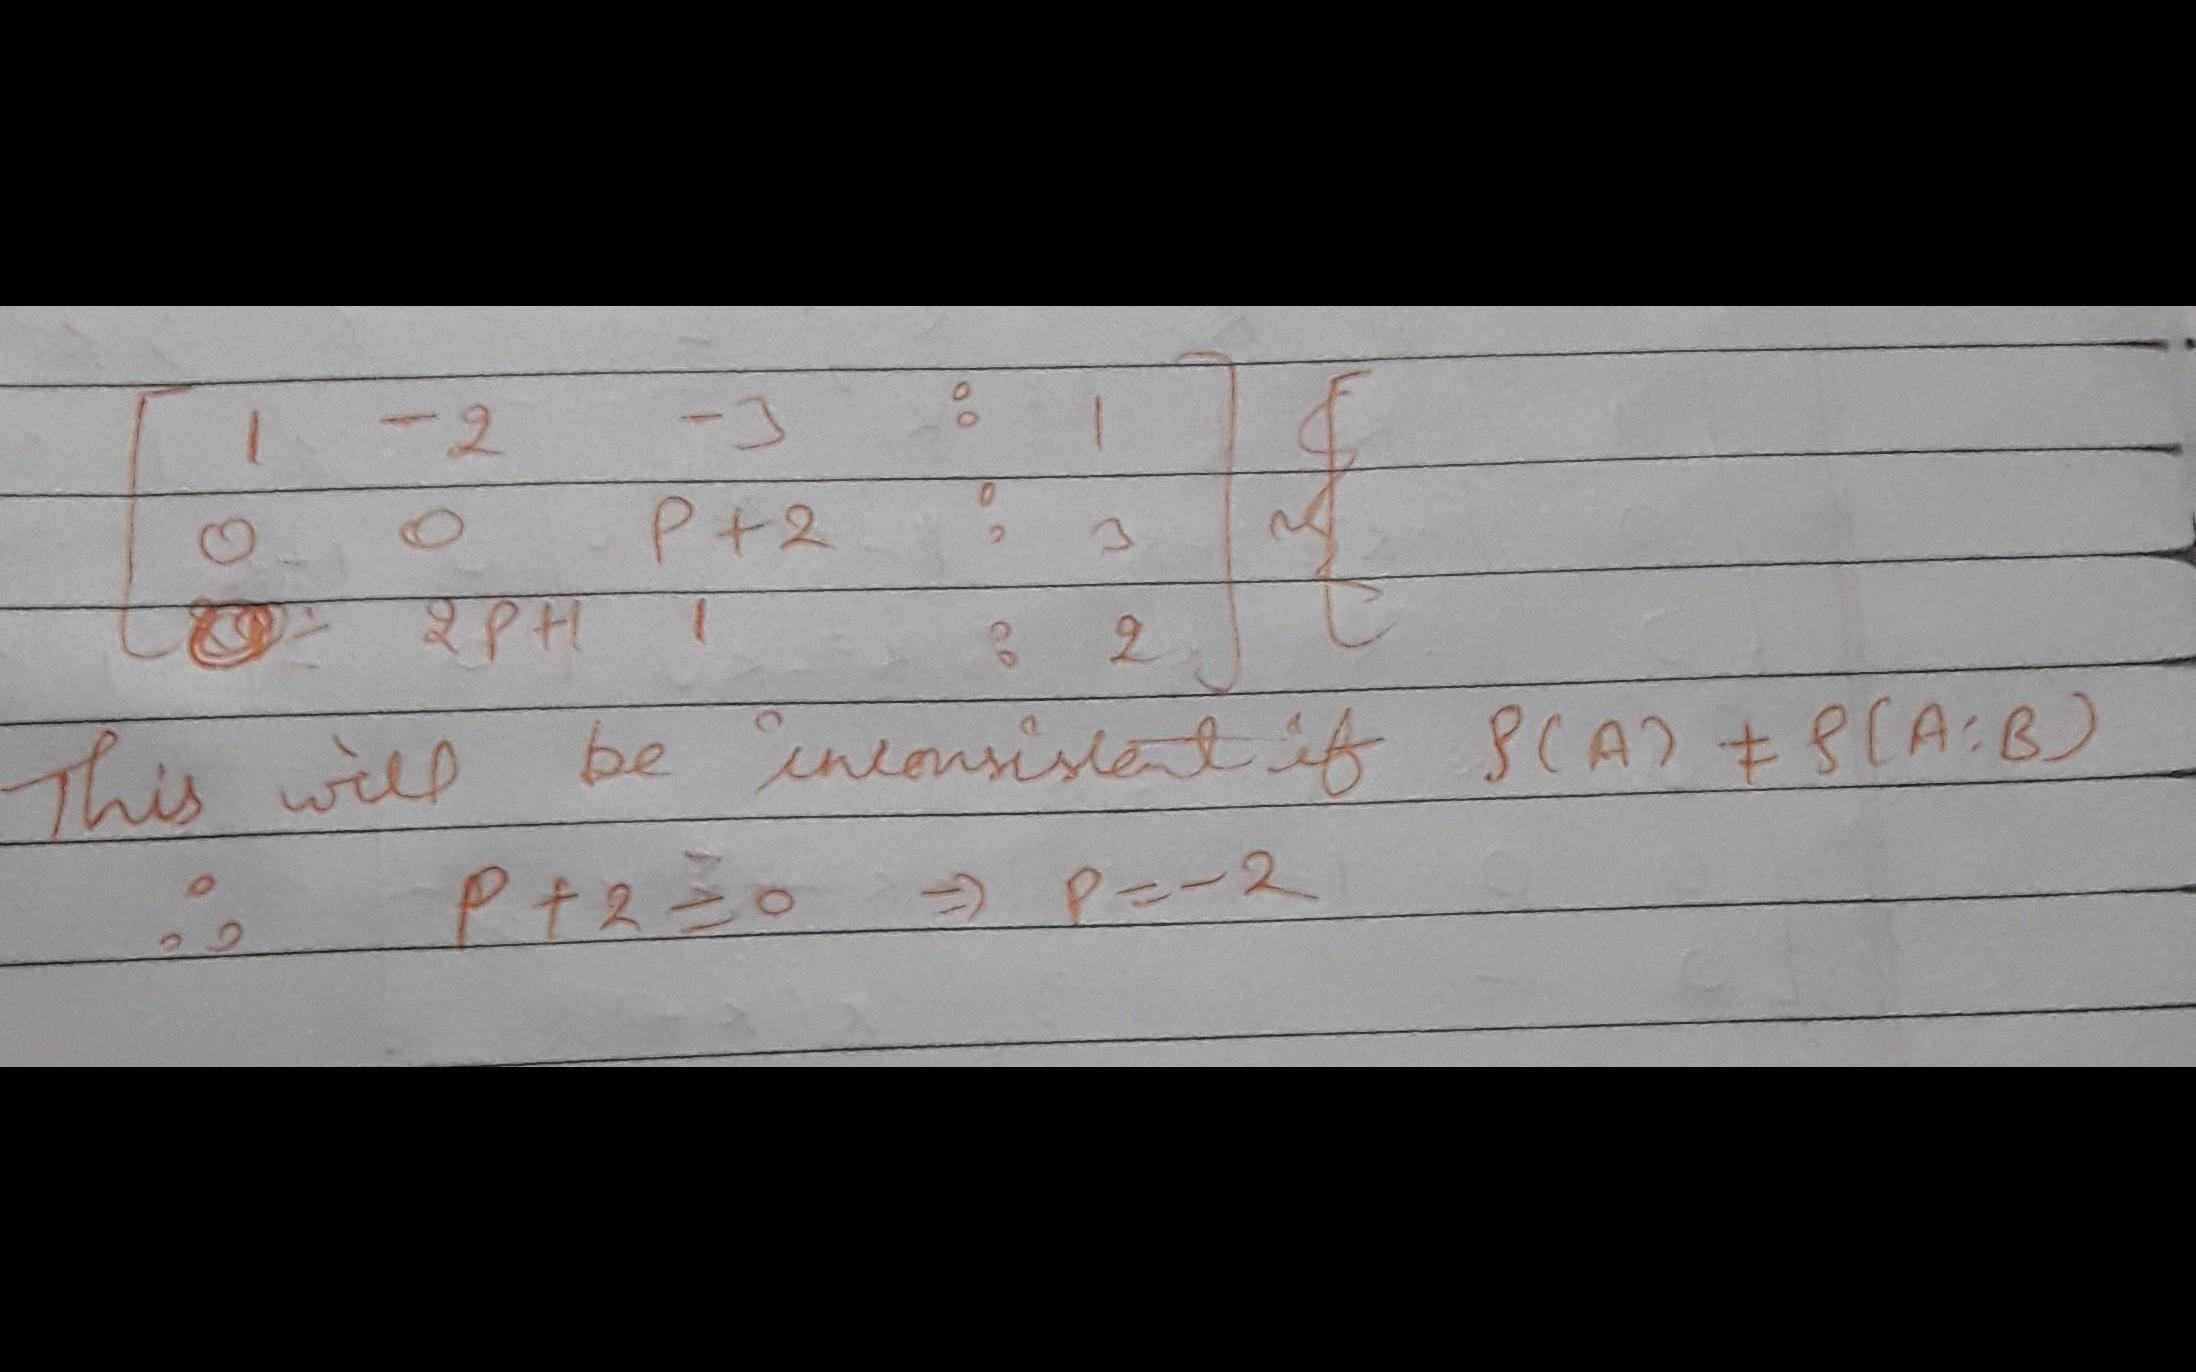 1 -2 -3 : 1
0 0 P+2 : 3
2P+1 1 : 2
This will be inconsistent if ρ(A) ≠ ρ(A:B)
∴ P+2=0 ⇒ P=-2